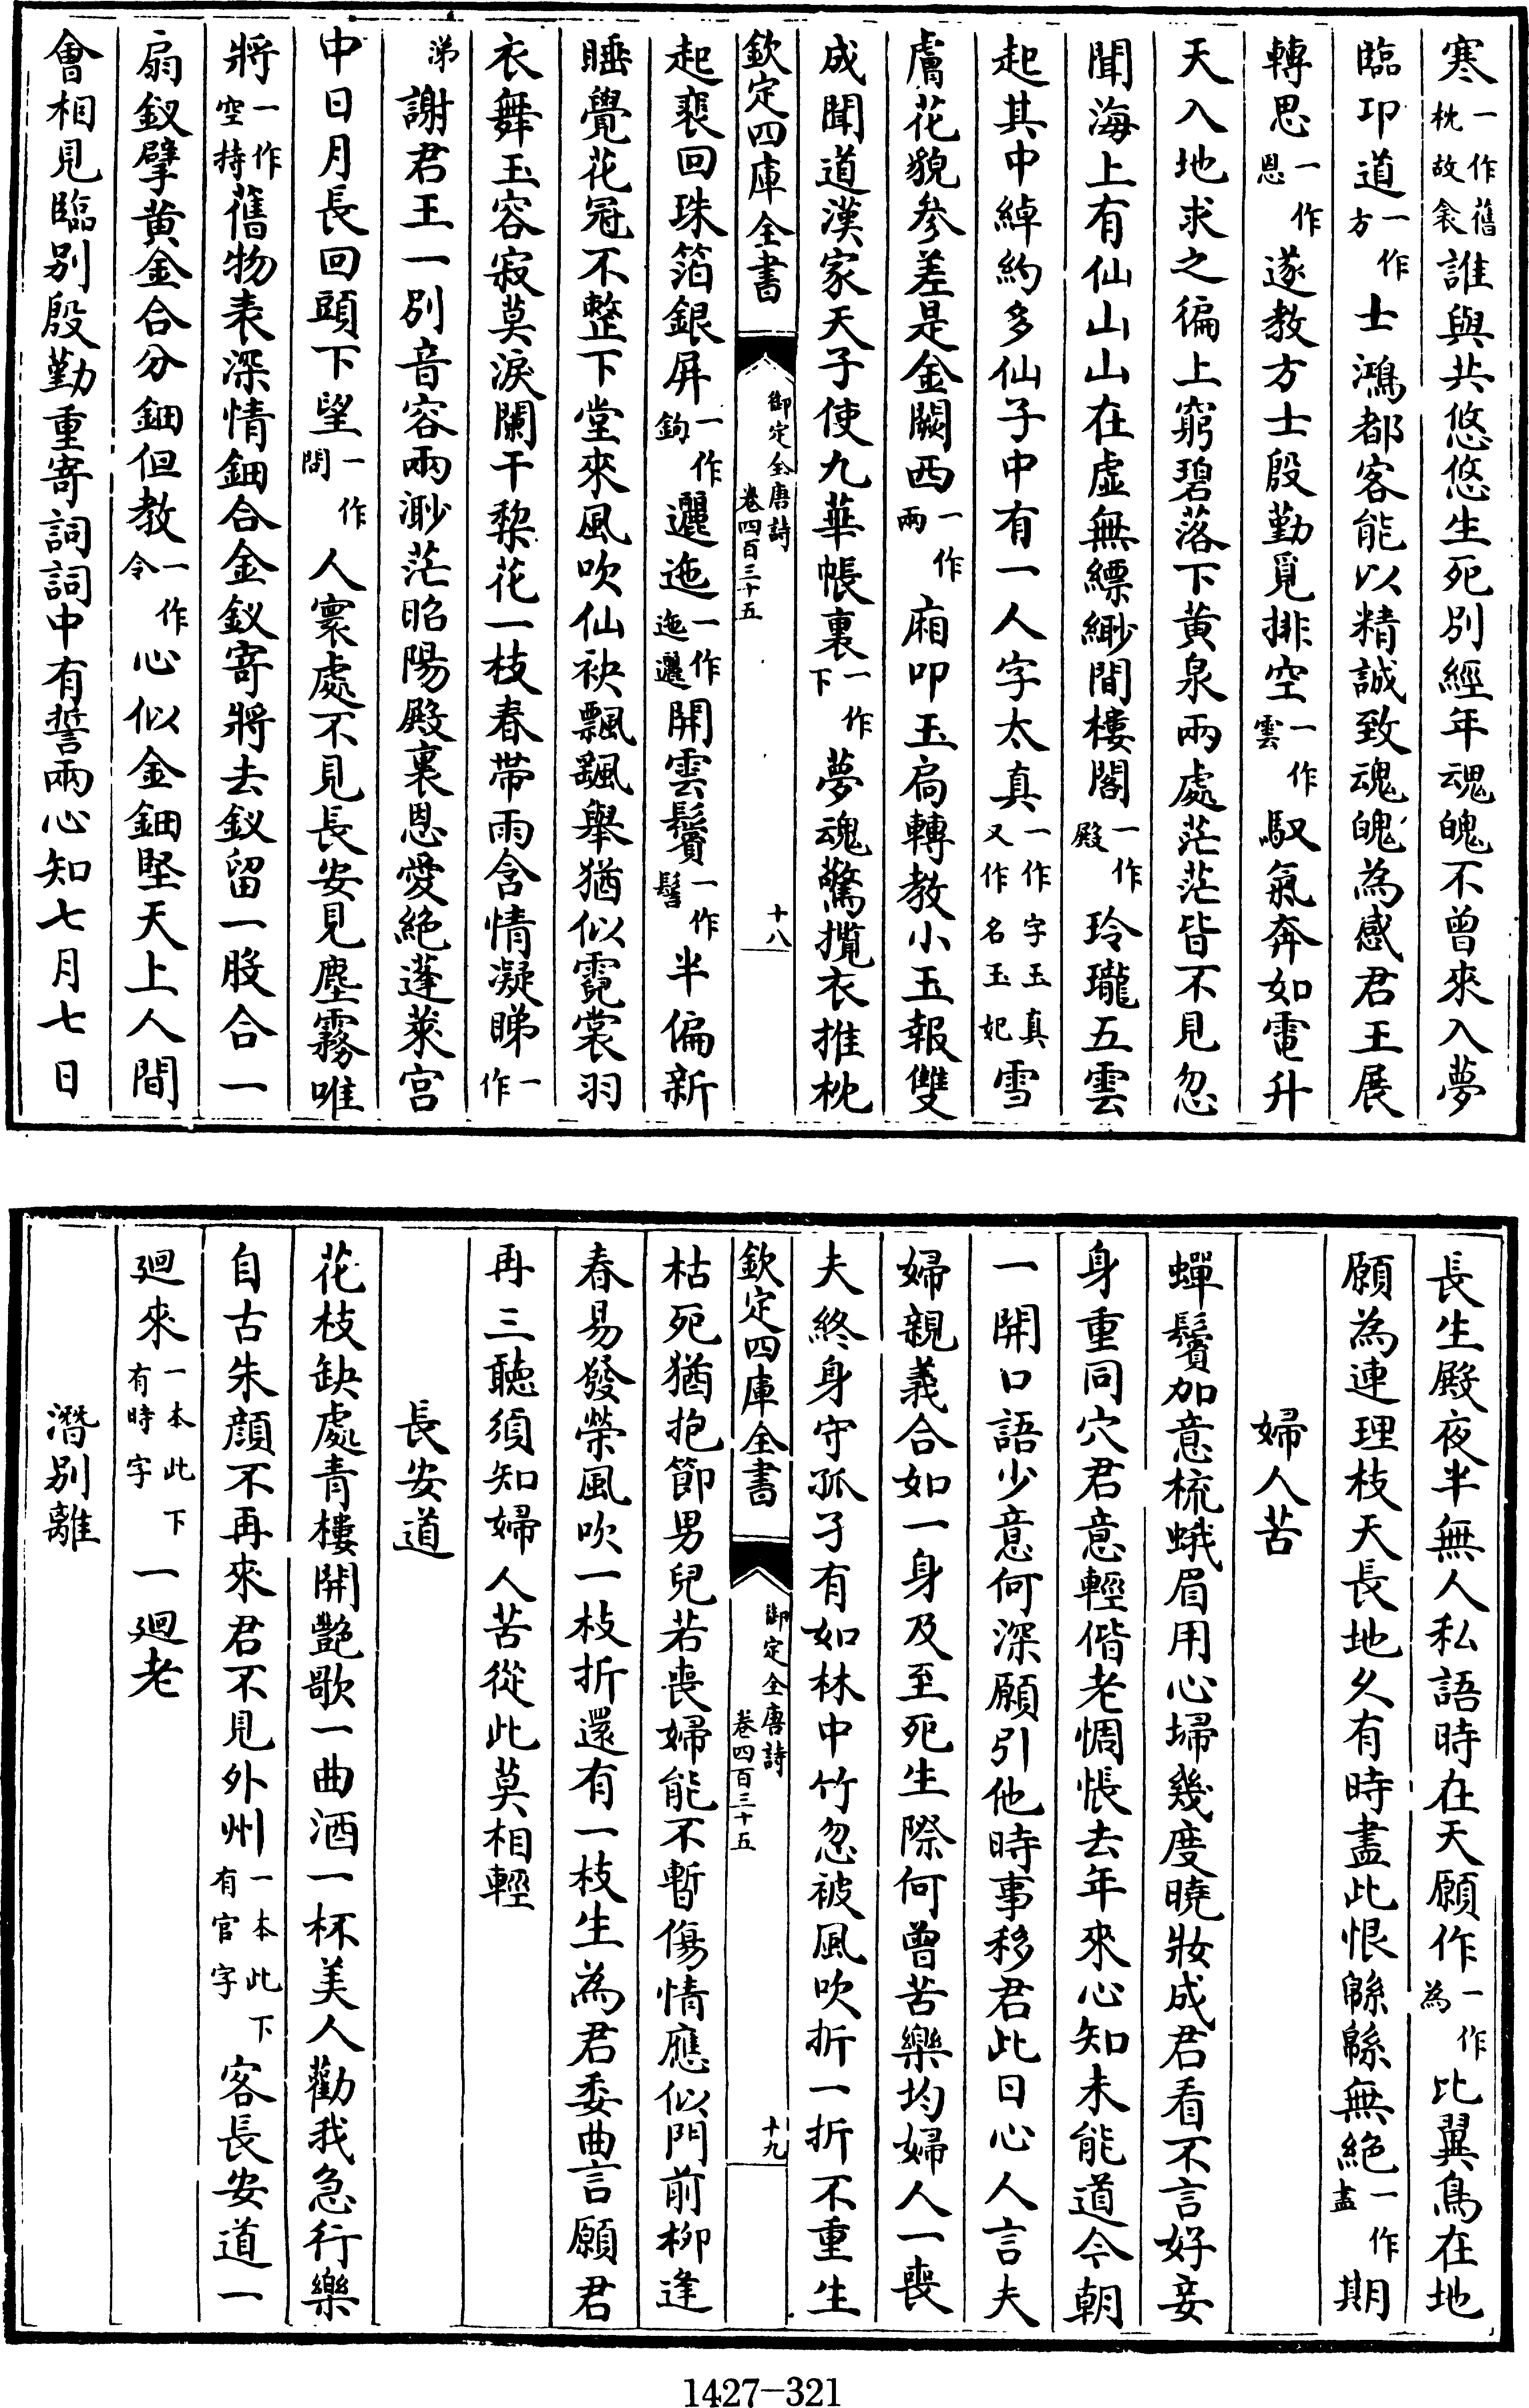 寒一作舊枕故衾誰與共悠悠生死别經年魂魄不曾來入夢
臨卭道一作方士鴻都客能以精誠致魂魄為感君王展
轉思一作恩遂教方士殷勤覓排空一作雲馭氣奔如電升
天入地求之徧上窮碧落下黄泉兩處茫茫皆不見忽
聞海上有仙山山在虚無縹緲間樓閣一作殿玲瓏五雲
起其中綽約多仙子中有一人字太真一作字玉真又作名玉妃雪
膚花貌參差是金闕西一作兩廂叩玉扃轉教小玉報雙
成聞道漢家天子使九華帳裏一作下夢魂驚攬衣推枕
欽定四庫全書 御定全唐詩卷四百三十五 十八
起裴回珠箔銀屏一作鉤邐迤一作迤邐開雲鬢一作髻半偏新
睡覺花冠不整下堂來風吹仙袂飄飄舉猶似霓裳羽
衣舞玉容寂莫淚闌干棃花一枝春帶雨含情凝睇一作
涕謝君王一别音容兩渺茫昭陽殿裏恩愛絶蓬萊宫
中日月長回頭下望一作問人寰處不見長安見塵霧唯
將一作空持舊物表深情鈿合金釵寄將去釵留一股合一
扇釵擘黄金合分鈿但教一作令心似金鈿堅天上人間
會相見臨别殷勤重寄詞詞中有誓兩心知七月七日
長生殿夜半無人私語時在天願作一作為比翼鳥在地
願為連理枝天長地久有時盡此恨緜緜無絶一作盡期
婦人苦
蟬鬢加意梳蛾眉用心埽幾度曉妝成君看不言好妾
身重同穴君意輕偕老惆悵去年來心知未能道今朝
一開口語少意何深願引他時事移君此日心人言夫
婦親義合如一身及至死生際何曾苦樂均婦人一喪
夫終身守孤孑有如林中竹忽被風吹折一折不重生
欽定四庫全書 御定全唐詩卷四百三十五 十九
枯死猶抱節男兒若喪婦能不暫傷情應似門前柳逢
春易發榮風吹一枝折還有一枝生為君委曲言願君
再三聽須知婦人苦從此莫相輕
長安道
花枝缺處青樓開艷歌一曲酒一杯美人勸我急行樂
自古朱顔不再來君不見外州一本此下有官字客長安道一
廻來一本此下有時字一廻老
潛别離
1427-321